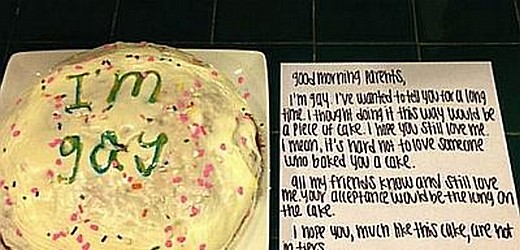 I'm
gay
good morning parents,
i'm gay. i've wanted to tell you for a long
time. i thought doing it this way would be
a piece of cake. i hope you still love me.
i mean, it's hard not to love someone
who baked you a cake.
all my friends know and still love
me. your acceptance would be the icing on
the cake.
i hope you, much like this cake, are not
in tiers.